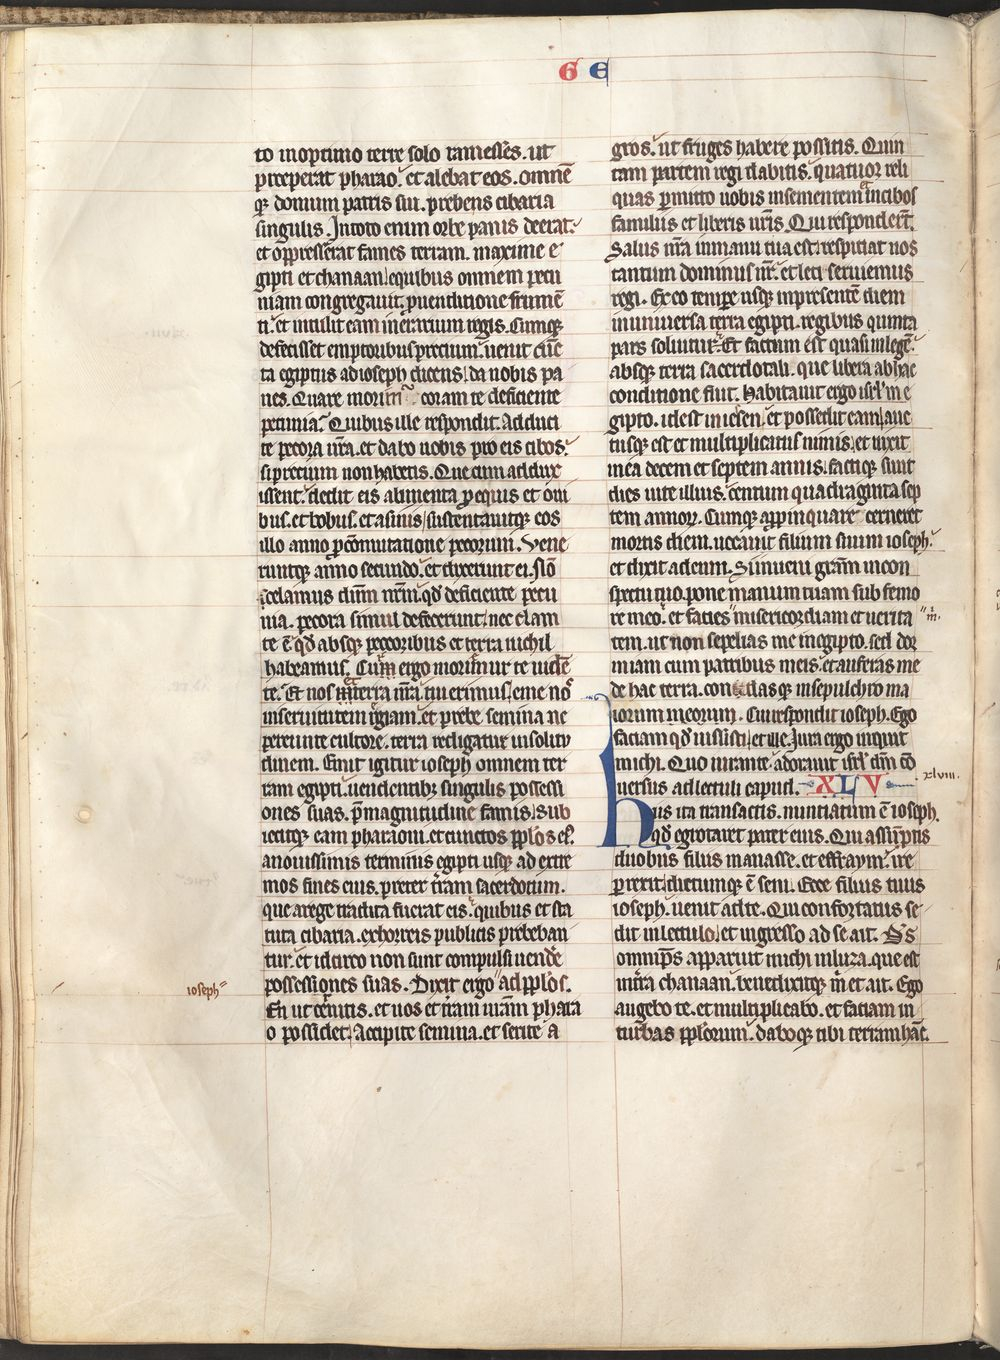 G E
to in optimo terre solo ramesses. ut
preceperat pharao. et alebat eos. omnē
qȝ domum patris sui. prebens cibaria
singulis. In toto enim orbe panis deerat.
et oppresserat fames terram. maxime e
gipti et chanaan. e quibus omnem pecu
niam congregauit. ꝓ uenditione frumē
ti. et intulit eam in erarium regis. Cumqȝ
defecisset emptoribus precium. uenit cūc
ta egiptus ad ioseph dicens. da nobis pa
nes. Quare morim̃ coram te deficiente
pecunia. Quibus ille respondit. Adduci
te pecora ur̄a. et dabo uobis pro eis cibos.
si precium non habetis. Que cum addux
issent. dedit eis alimenta p equis et oui
bus. et bobus. et asinis. sustentauitqȝ eos
illo anno ꝓ cōmutatione pecorum. Vene
runtqȝ anno secundo. et dixerunt ei. Nō
celamus dūm nr̄m. qd̄ deficiente pecu
nia. pecora simul defecerunt. nec clam
te ē qd̄ absqȝ pecoribus et terra nichil
habeamus. Cur ergo morimur te uidē
te. Et nos et terra nr̄a tui erimus. eme nos
in seruitutem regiam. et prebe semina ne
pereunte cultore. terra redigatur in solitu
dinem. Emit igitur ioseph omnem ter
ram egipti. uendentibȝ singulis possessi
ones suas. p̄ magnitudine famis. Sub
iecitqȝ eam pharaoni. et cunctos pplos eī.
a nouissimis terminis egipti usqȝ ad extre
mos fines eius. preter tr̄am sacerdotum.
que a rege tradita fuerat eis. quibus et sta
tuta cibaria. ex horreis publicis prebeban
tur. et idcirco non sunt compulsi uende
possessiones suas. Dixit ergo ad pplos.
ioseph
En ut cernitis. et uos et tr̄am ur̄am phara
o possidet. Accipite semina. et serite a
gros. ut fruges habere possitis. Quin
tam partem regi dabitis. quatuor reli
quas ꝑmitto uobis in sementem et in cibos
familiis et liberis ur̄is. Qui responderūt.
Salus nr̄a in manu tua est. respiciat nos
tantum dominus nr̄. et leti seruiemus
regi. Ex eo tempore usqȝ in presentē diem
in uniuersa terra egipti. regibus quinta
pars soluitur. Et factum est quasi in legē.
absqȝ terra sacerdotali. que libera ab hac
conditione fuit. Habitauit ergo isrl̄ in e
gipto. id est in iesen. et possedit eam. auc
tusqȝ est et multiplicatus nimis. et uixit
in ea decem et septem annis. factiqȝ sunt
dies uite illius. centum quadraginta sep
tem annoꝝ. Cumqȝ appinquare cerneret
mortis diem. uocauit filium suum ioseph.
et dixit ad eum. Si inueni gr̄am in con
spectu tuo. pone manum tuam sub femo
re meo. et facies m̄ misericordiam et uerita
tem. ut non sepelias me in egipto. sed dor
miam cum patribus meis. et auferas me
de hac terra. condasqȝ in sepulchro ma
iorum meorum. Cui respondit ioseph. Ego
faciam qd̄ iussisti. et ille. Iura ergo inquit
michi. Quo iurante. adorauit isrl̄ dm̄ cō
xlviii.
uersus ad lectuli caput. XLV
his ita transactis. nuntiatum ē ioseph.
qd̄ egrotaret pater eius. Qui assūptis
duobus filiis manasse. et effraym. ire
perrexit. dictumqȝ ē seni. Ecce filius tuus
ioseph. uenit ad te. Qui confortatus se
dit in lectulo. et ingresso ad se ait. DS
omnip̄s apparuit michi in luza. que est
in tr̄a chanaan. benedixitqȝ m̄ et ait. Ego
augebo te. et multiplicabo. et faciam in
turbas pplorum. daboqȝ tibi terram hāc.